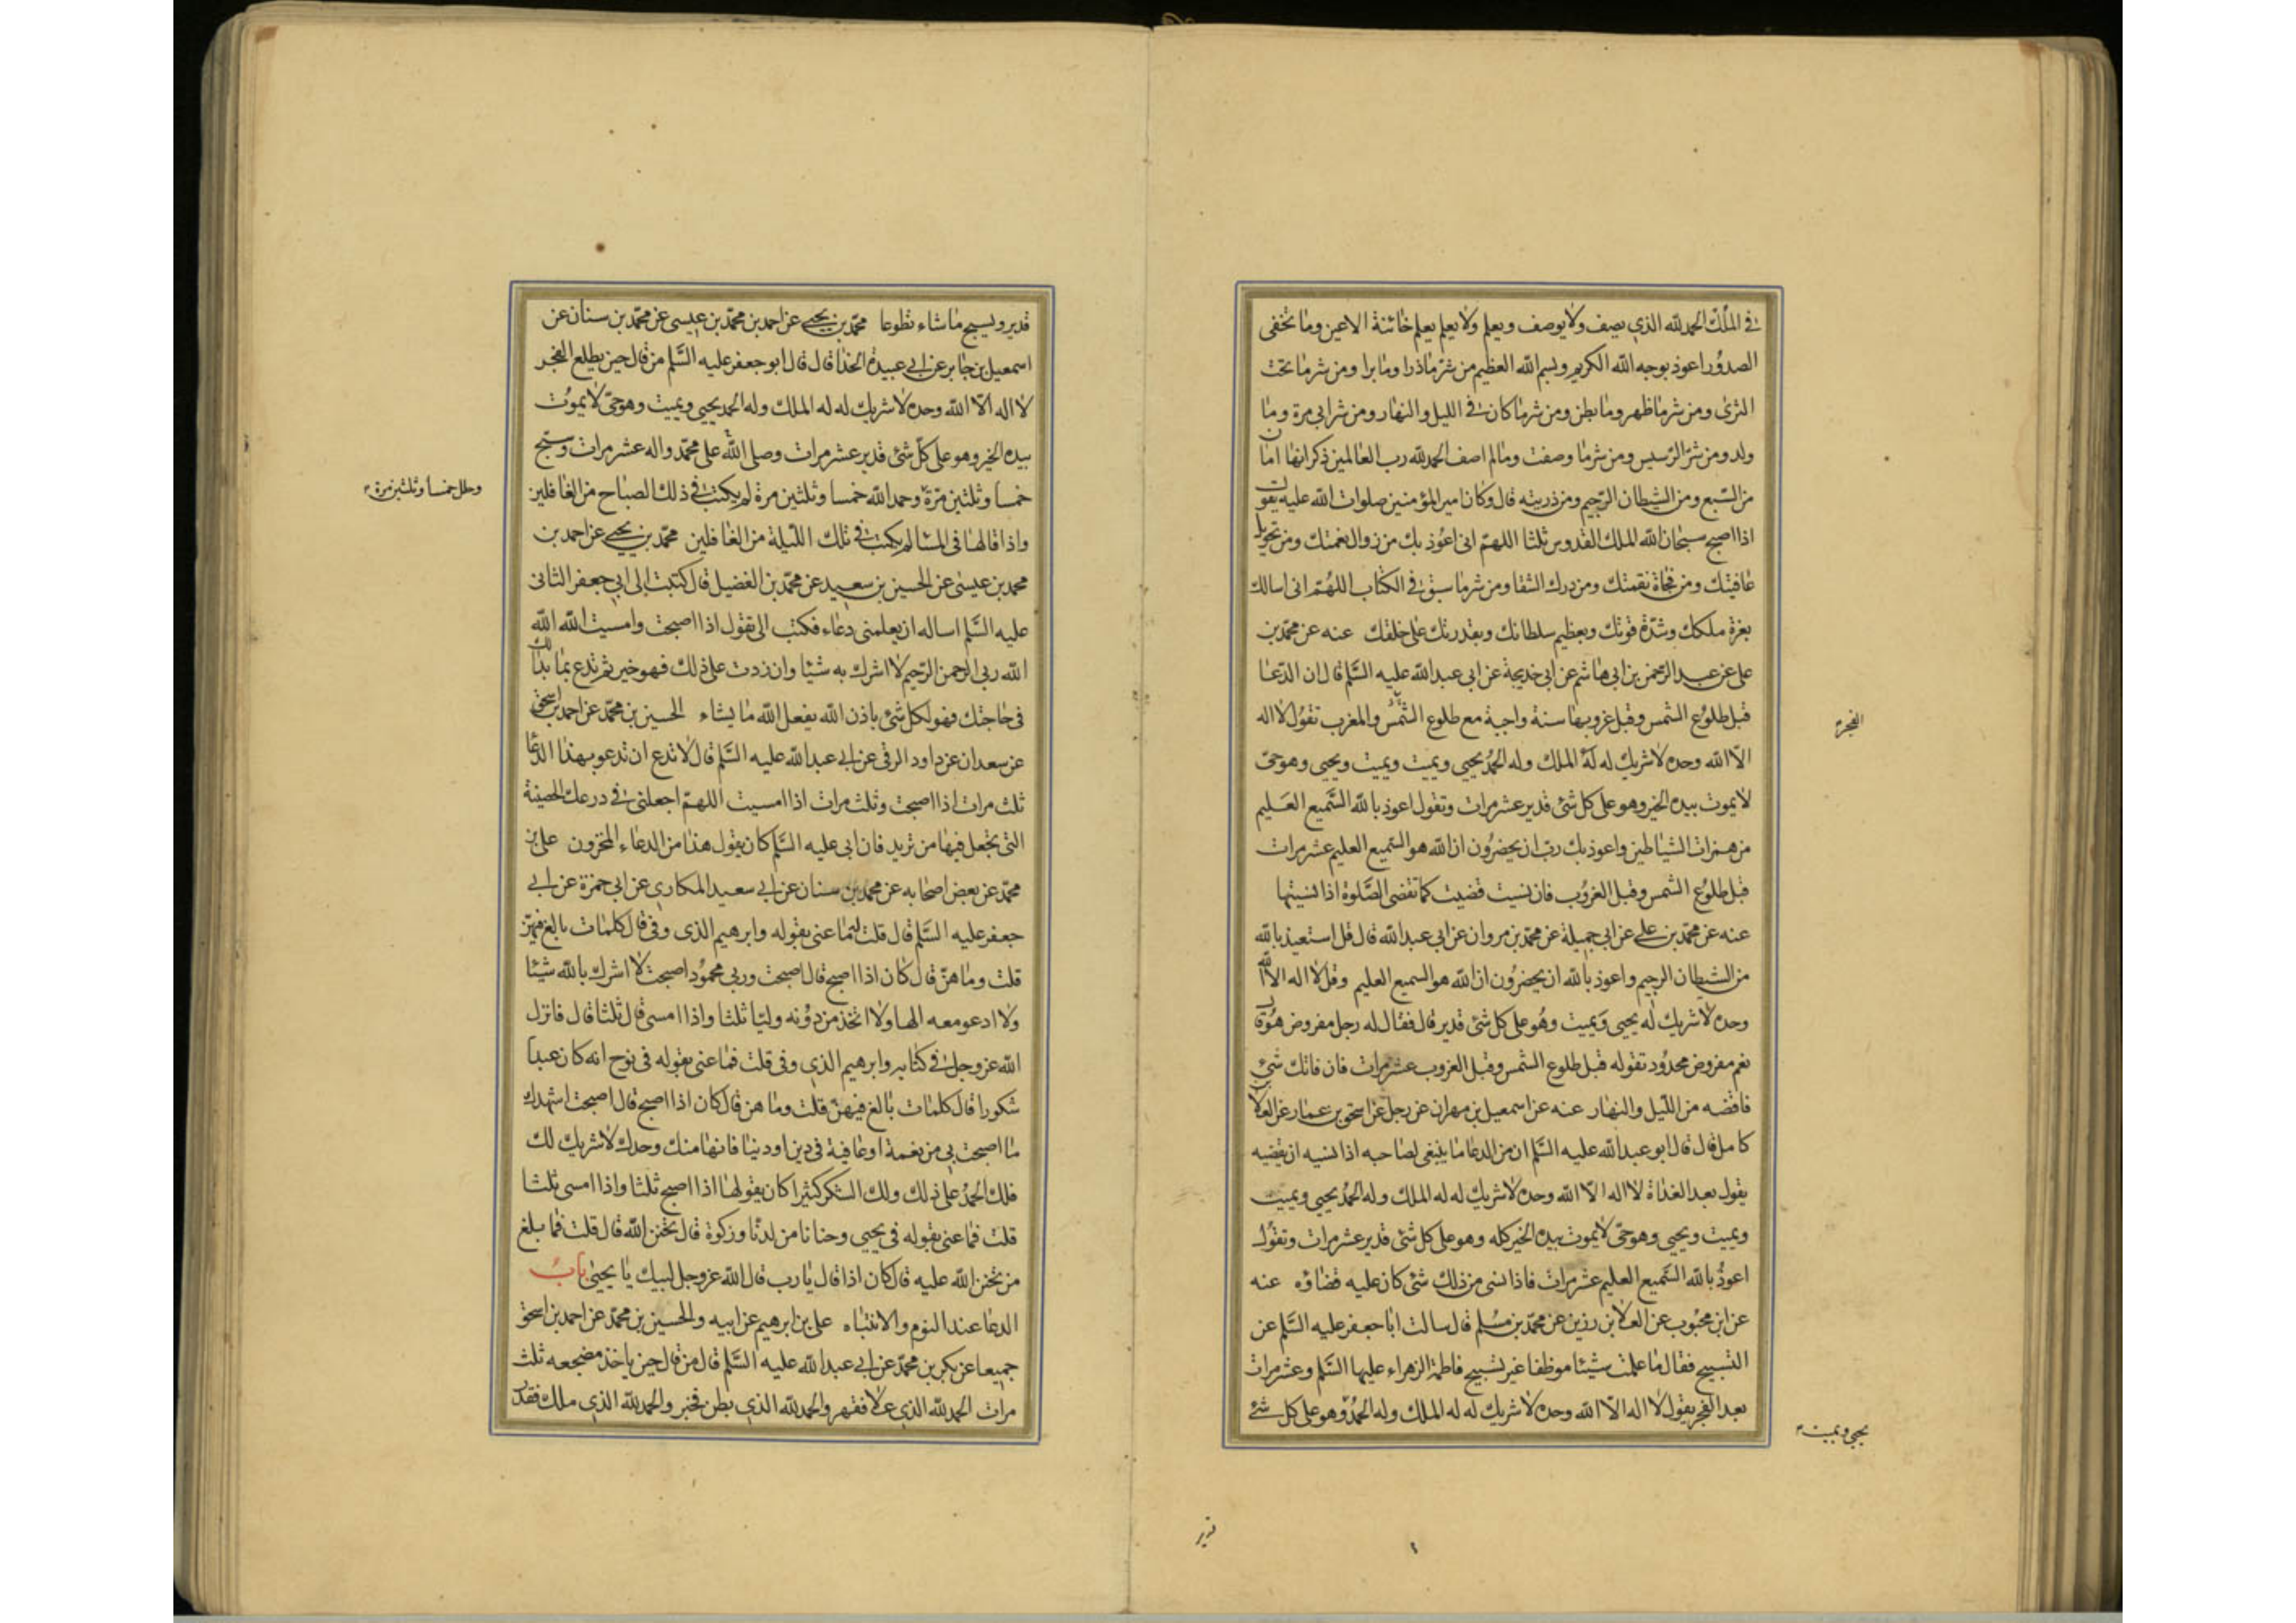 في الملك الحمد لله الذي يصف ولا يوصف ويعلم ولا يعلم يعلم خائنة الاعين وما تخفى
الصدور اعوذ بوجه الله الكريم وبسم الله العظيم من شر ما ذرا وما برا ومن شر ما تحت
الثرى ومن شر ما ظهر وما بطن ومن شر ما كان في الليل والنهار ومن شر ابي مرة وما
ولد ومن شر الرسيس ومن شر ما وصفت وما لم اصف الحمد لله رب العالمين ذكر انها امان
من السبع ومن الشيطان الرجيم ومن ذريته قال وكان امير المؤمنين صلوات الله عليه يقول
اذا اصبح سبحان الله الملك القدوس ثلثا اللهم اني اعوذ بك من زوال نعمتك ومن تحويل
عافيتك ومن فجاة نقمتك ومن درك الشقا ومن شر ما سبق في الكتاب اللهم اني اسالك
بعزة ملكك وشدة قوتك وبعظيم سلطانك وبقدرتك على خلقك عنه عن محمد بن
على عن عبد الرحمن بن ابي هاشم عن ابي خديجة عن ابي عبد الله عليه السلم قال ان الدعا
قبل طلوع الشمس وقبل غروبها سنة واجبة مع طلوع الشمس والمغرب تقول لا اله
الفجر
الا الله وحده لا شريك له له الملك وله الحمد يحيى ويميت ويميت ويحيى وهو حى
لا يموت بيده الخير وهو على كل شئ قدير عشر مرات وتقول اعوذ بالله السميع العليم
من همزات الشياطين واعوذ بك رب ان يحضرون ان الله هو السميع العليم عشر مرات
قبل طلوع الشمس وقبل الغروب فان نسيت قضيت كما تقضى الصلوة اذا نسيتها
عنه عن محمد بن على عن ابي جميلة عن محمد بن مروان عن ابي عبد الله قال قل استعيذ بالله
من الشيطان الرجيم واعوذ بالله ان يحضرون ان الله هو السميع العليم وقل لا اله الا الله
وحده لا شريك له يحيى ويميت وهو على كل شئ قدير قال فقال له رجل مفروض هو قال
نعم مفروض محدود تقوله قبل طلوع الشمس وقبل الغروب عشر مرات فان فاتك شئ
فاقضه من الليل والنهار عنه عن اسمعيل بن مهران عن رجل عن اسحق بن عمار عن العلا بن
كامل قال قال ابو عبد الله عليه السلم ان من الدعا ما ينبغى لصاحبه اذا نسيه ان يقضيه
يقول بعد الغداة لا اله الا الله وحده لا شريك له له الملك وله الحمد يحيى ويميت
ويميت ويحيى وهو حى لا يموت بيده الخير كله وهو على كل شئ قدير عشر مرات وتقول
اعوذ بالله السميع العليم عشر مرات فاذا نسى من ذلك شئ كان عليه قضاؤه عنه
عن ابن محبوب عن العلا بن رزين عن محمد بن مسلم قال سالت ابا جعفر عليه السلم عن
التسبيح فقال ما علمت شيئا موظفا غير تسبيح فاطمة الزهراء عليها السلم وعشر مرات
بعد الفجر يقول لا اله الا الله وحده لا شريك له له الملك وله الحمد وهو على كل شئ
يحيى ويميت
قدير
قدير ويسبح ما شاء تطوعا محمد بن يحيى عن احمد بن محمد بن عيسى عن محمد بن سنان عن
اسمعيل بن جابر عن ابي عبيدة الحذا قال قال ابو جعفر عليه السلم من قال حين يطلع الفجر
لا اله الا الله وحده لا شريك له له الملك وله الحمد يحيى ويميت وهو حى لا يموت
بيده الخير وهو على كل شئ قدير عشر مرات وصلى الله على محمد واله عشر مرات وسبح
خمسا وثلثين مرة وحمد الله خمسا وثلثين مرة لم يكتب في ذلك الصباح من الغافلين
وهلل خمسا وثلثين مرة
واذا قالها في المسا لم يكتب في تلك الليلة من الغافلين محمد بن يحيى عن احمد بن
محمد بن عيسى عن الحسين بن سعيد عن محمد بن الفضيل قال كتبت الى ابي جعفر الثانى
عليه السلم اساله ان يعلمني دعاء فكتب الى تقول اذا اصبحت وامسيت الله الله
الله ربي الرحمن الرحيم لا اشرك به شيئا وان زدت على ذلك فهو خير ثم تدع بما بدا لك
في حاجتك فهو لكل شئ باذن الله يفعل الله ما يشاء الحسين بن محمد عن احمد بن اسحق
عن سعدان عن داود الرقى عن ابي عبد الله عليه السلم قال لا تدع ان تدعو بهذا الدعا
ثلث مرات اذا اصبحت وثلث مرات اذا امسيت اللهم اجعلني في درعك الحصينة
التى تجعل فيها من تريد فان ابي عليه السلم كان يقول هذا من الدعاء المخزون على بن
محمد عن بعض اصحابه عن محمد بن سنان عن ابي سعيد المكاري عن ابي حمزة عن ابي
جعفر عليه السلم قال قلت له ما عنى بقوله وابرهيم الذى وفى قال كلمات بالغ فيهن
قلت وما هن قال كان اذا اصبح قال اصبحت وربي محمود اصبحت لا اشرك بالله شيئا
ولا ادعو معه الها ولا اتخذ من دونه وليا ثلثا واذا امسى قال ثلثا قال فانزل
الله عز وجل في كتابه وابرهيم الذي وفى قلت فما عنى بقوله في نوح انه كان عبدا
شكورا قال كلمات بالغ فيهن قلت وما هن قال كان اذا اصبح قال اصبحت اشهدك
ما اصبحت بي من نعمة او عافية في دين او دنيا فانها منك وحدك لا شريك لك
فلك الحمد على ذلك ولك الشكر كثيرا كان يقولها اذا اصبح ثلثا واذا امسى ثلثا
قلت فما عنى بقوله في يحيى وحنانا من لدنا وزكوة قال تحنن الله قال قلت فما بلغ
من تحنن الله عليه قال كان اذا قال يا رب قال الله عز وجل لبيك يا يحيى باب
الدعا عند النوم والانتباه على بن ابرهيم عن ابيه والحسين بن محمد عن احمد بن اسحق
جميعا عن بكر بن محمد عن ابي عبد الله عليه السلم قال من قال حين ياخذ مضجعه ثلث
مرات الحمد لله الذي علا فقهر والحمد لله الذي بطن فخبر والحمد لله الذي ملك فقدر